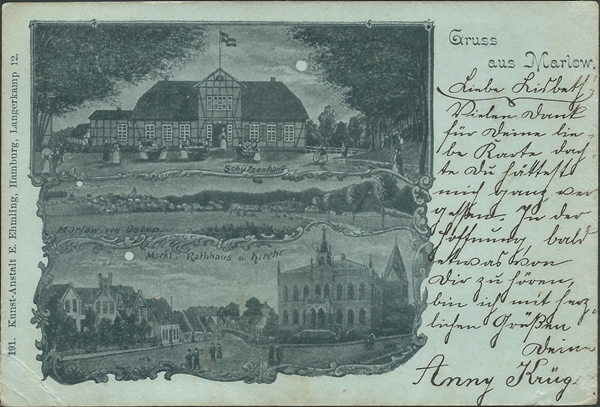 Gruss
aus Marlow.
Liebe Lisbeth,
Vielen Dank
für Deine lie-
be Karte dach-
te Du hättest
mich ganz ver
gessen. In der
Hoffnung, bald
etwas von
Dir zu hören,
bin ich mit herz-
lichen Grüßen
Deine
Anny Krüg
Schützenhaus
Marlow von Osten
Markt, Rathhaus u. Kirche
191. Kunst-Anstalt E. Ehmling, Hamburg, Langerkamp 12.